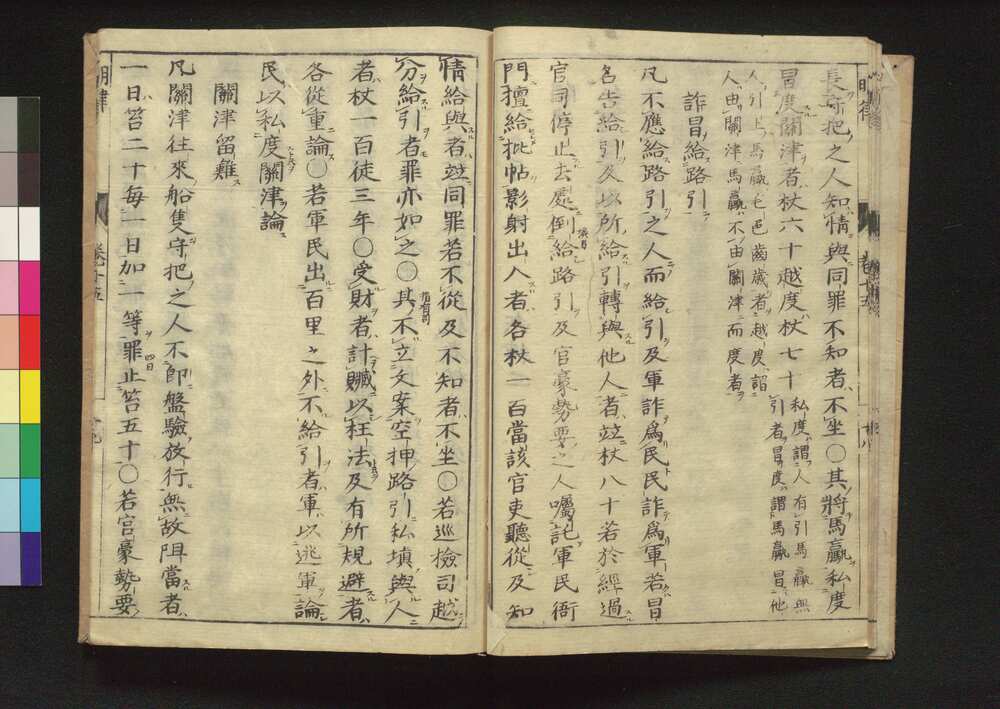 長守把之人知情與同罪不知者不坐○其將馬驘私度
冒度關津者杖六十越度杖七十私度謂人有引馬驘無引者冒度謂馬驘冒他
人引上馬驘毛色齒歲者越度謂人由關津馬驘不由關津而度者
詐冒給路引
凡不應給路引之人而給引及軍詐爲民民詐爲軍若冒
名告給引及以所給引轉與他人者竝杖八十若於經過
官司停止去處倒給路引及官豪勢要之人囑託軍民衙
門擅給批帖影射出入者各杖一百當該官吏聽從及知
情給與者竝同罪若不從及不知者不坐○若巡檢司越
分給引者罪亦如之○其不立文案空押路引私塡與人
者杖一百徒三年○受財者計贓以枉法及有所規避者
各從重論○若軍民出百里之外不給引者軍以逃軍論
民以私度關津論
關津留難
凡關津往來船隻守把之人不卽盤驗放行無故阻當者
一日笞二十每一日加一等罪止笞五十○若官豪勢要
明律
卷十五